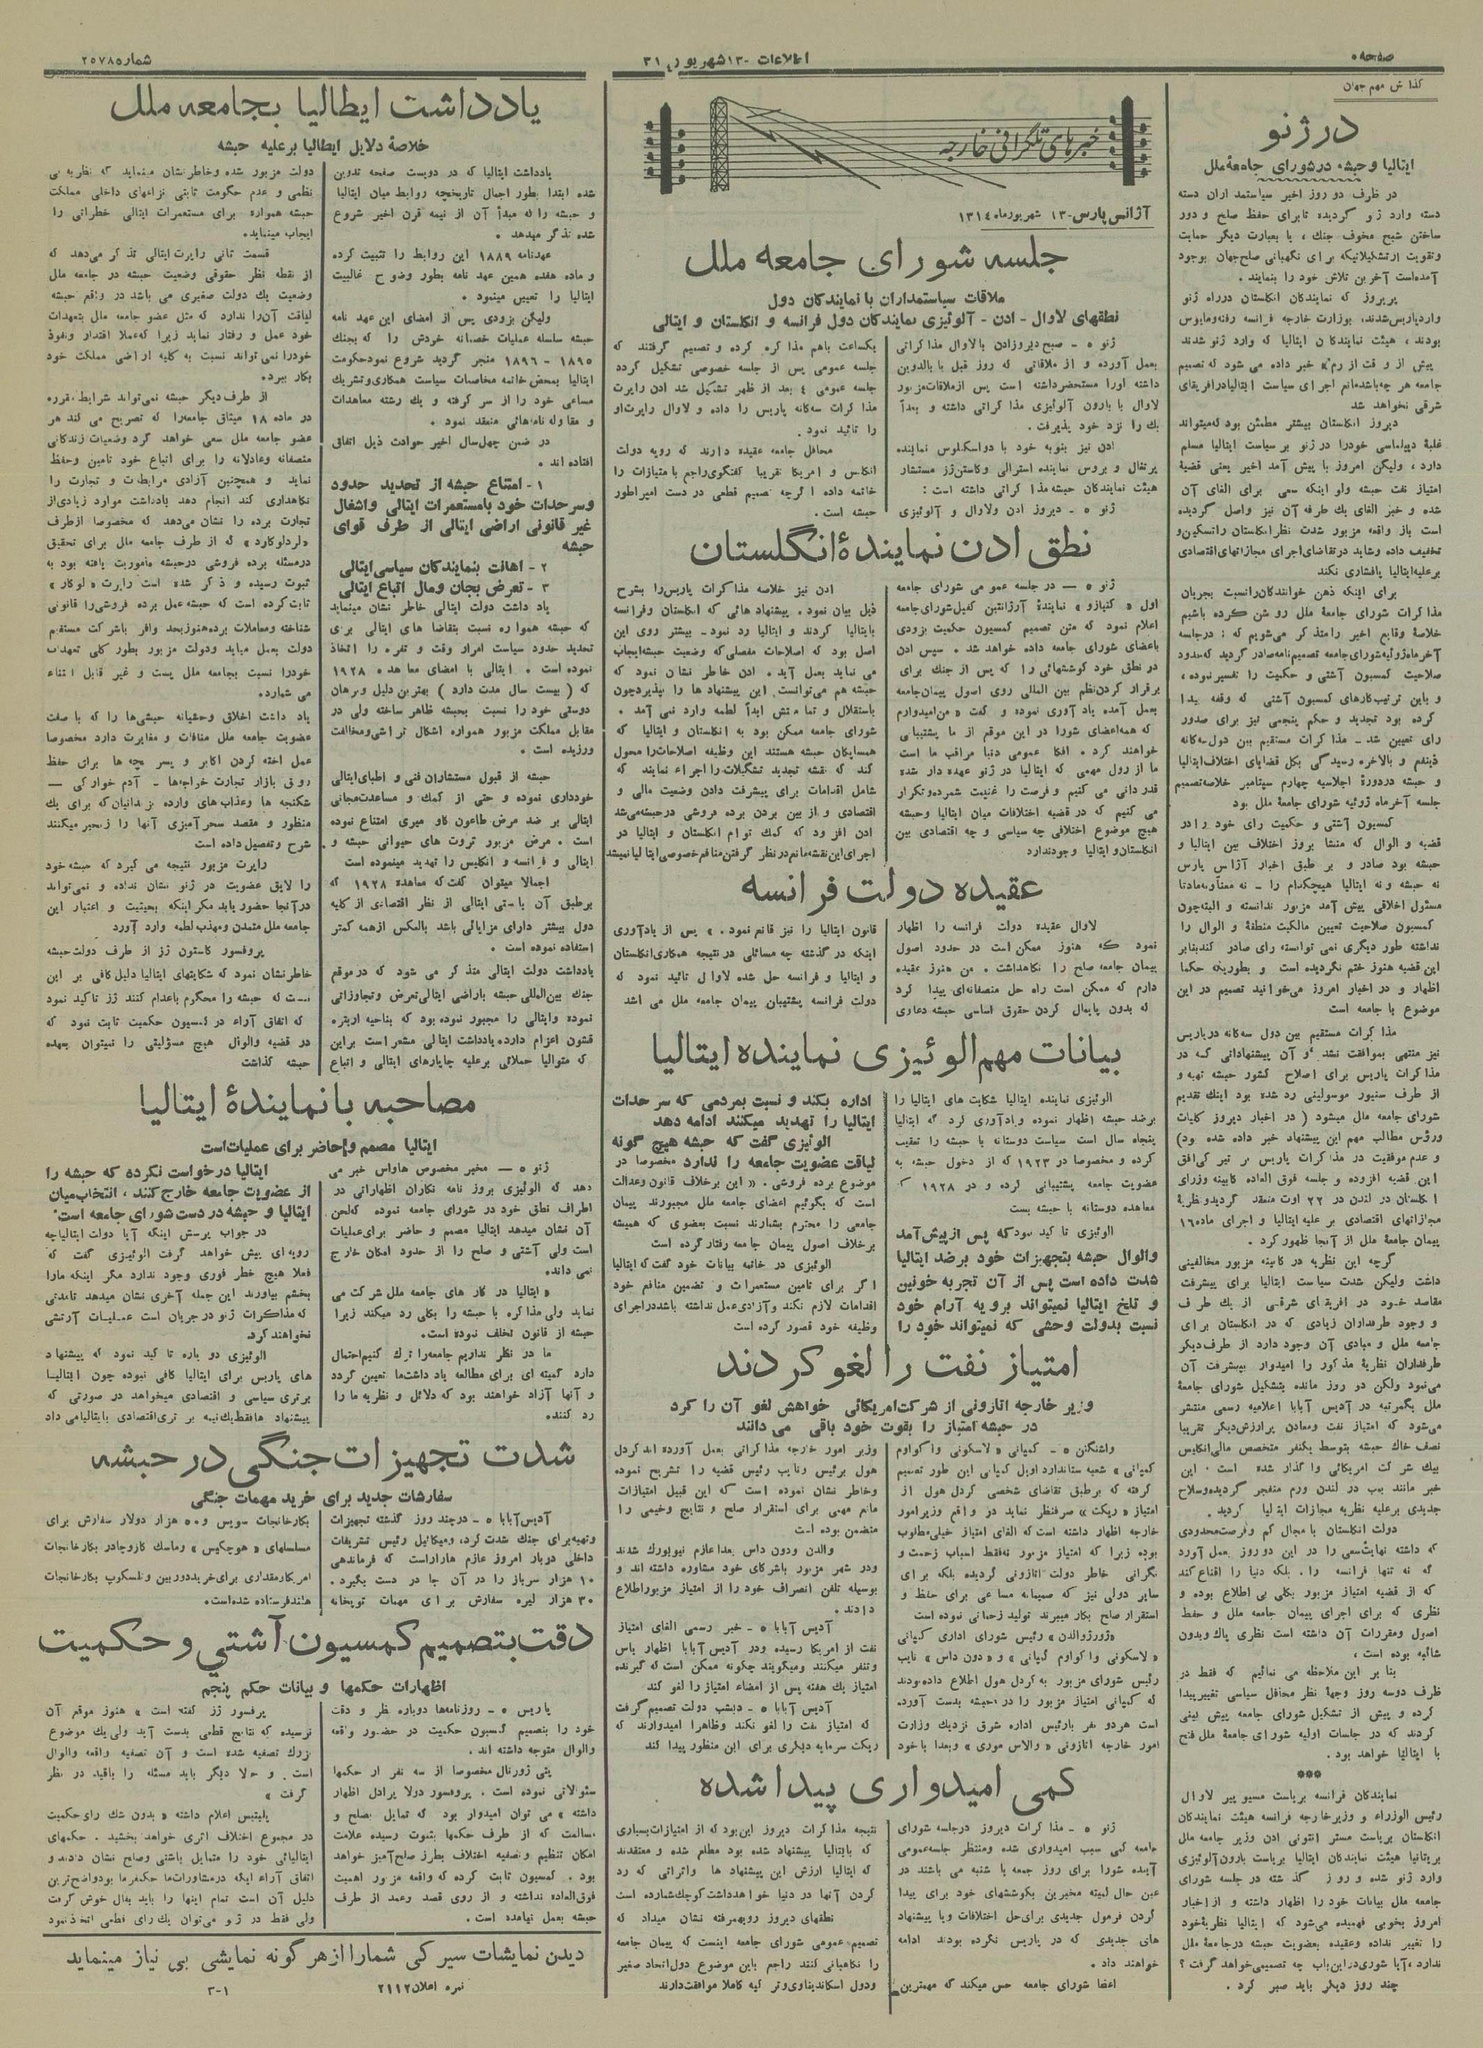 صفحه ۵
اطلاعات ۱۳ شهریور ۳۱۴
شماره ۲۵۷۸
گذارش مهم جهان
در ژنو
ایتالیا و حبشه در شورای جامعهٔ ملل
در ظرف دو روز اخیر سیاستمداران دسته
دسته وارد ژنو گردیده تا برای حفظ صلح و دور
ساختن شبح مخوف جنك، یا بعبارت دیگر حمایت
وتقویت از تشکیلاتیکه برای نگهبانی صلح جهان بوجود
آمده‌است آخرین تلاش خود را بنمایند.
پریروز که نمایندگان انگلستان در راه ژنو
وارد پاریس شدند، بوزارت خارجه فرانسه رفته و مایوس
بودند، هیئت نمایندگان ایتالیا که وارد ژنو شدند
جامعه هر چه باشد مانع اجرای سیاست ایتالیا در افریقای
شرقی نخواهد شد
دیروز انگلستان بیشتر مطمئن بود که میتواند
غلبهٔ دیپلماسی خود را در ژنو بر سیاست ایتالیا مسلم
دارد، ولیکن امروز با پیش آمد اخیر یعنی قضیهٔ
امتیاز نفت حبشه ولو اینکه سعی برای الغای آن
شده و خبر الغای یك طرفه آن نیز واصل گردیده
تخفیف داده و شاید در تقاضای اجرای مجازاتهای اقتصادی
بر علیه ایتالیا پافشاری نکند
برای اینکه ذهن خوانندگان را نسبت بجریان
مذاکرات شورای جامعهٔ ملل روشن کرده باشیم
خلاصهٔ وقایع اخیر را متذکر می‌شویم که : در جلسه
آخر ماه ژوئیه شورای جامعه تصمیم نامه صادر گردید که حدود
صلاحیت کمسیون آشتی و حکمیت را تفسیر نموده،
و باین ترتیب کارهای کمسیون آشتی که وقفه پیدا
کرده بود تجدید و حکم پنجمی نیز برای صدور
رای تعیین شد ـ مذاکرات مستقیم بین دول سه‌گانه
ذینفع و بالاخره رسیدگی بکل قضایای اختلاف ایتالیا
و حبشه در دورهٔ اجلاسیه چهارم سپتامبر خلاصه تصمیم
جلسه آخر ماه ژوئیه شورای جامعهٔ ملل بود
کمسیون آشتی و حکمیت رای خود را در
قضیه و الوال که منشا بروز اختلاف بین ایتالیا و
حبشه بود صادر و بر طبق اخبار آژانس پارس
نه حبشه و نه ایتالیا هیچکدام را ـ نه معناً و نه مادتاً
مسئول اخلاقی پیش آمد مزبور ندانسته و البته چون
کمسیون صلاحیت تعیین مالکیت منطقهٔ و الوال را
نداشته طور دیگری نمی توانسته رای صادر کند بنابر
این قضیه هنوز ختم نگردیده است و بطوریکه حکما
اظهار و در اخبار امروز می‌خوانید تصمیم در این
موضوع با جامعه است
مذاکرات مستقیم بین دول سه‌گانه در پاریس
نیز منتهی بموافقت نشد و آن پیشنهاداتی که در
مذاکرات پاریس برای اصلاح کشور حبشه تهیه و
از طرف سنیور موسولینی رد شده بود اینك تقدیم
شورای جامعه ملل میشود ( در اخبار دیروز کلیات
ورؤس مطالب مهم این پیشنهاد خبر داده شده بود)
گرچه این نظریه در کابینه مزبور مخالفینی
داشت ولیکن شدت سیاست ایتالیا برای پیشرفت
مقاصد خود در افریقای شرقی از یك طرف
و وجود طرفداران زیادی که در انگلستان برای
جامعه ملل و مبادی آن وجود دارد از طرف دیگر
طرفداران نظریهٔ مذکور را امیدوار بپیشرفت آن
می‌نمود ولکن دو روز مانده بتشکیل شورای جامعهٔ
ملل یکمرتبه در آدیس آبابا اعلامیه رسمی منتشر
می‌شود که امتیاز نفت ومعادن پرارزش دیگر تقریبا
نصف خاك حبشه بتوسط یکنفر متخصص مالی انگلیس
بیك شرکت امریکائی واگذار شده است . این
خبر مانند بمب در لندن ورم منفجر گردیده وسلاح
جدیدی برعلیه نظریه مجازات ایتالیا گردید .
دولت انگلستان با مجال کم و فرصت محدودی
که داشته نهایت سعی را در این دو روز بعمل آورد
که نه تنها فرانسه را . بلکه دنیا را اقناع کند
که از قضیه امتیاز مزبور بکلی بی اطلاع بوده و
نظری که برای اجرای پیمان جامعه ملل و حفظ
اصول ومقررات آن داشته است نظری پاك وبدون
شائبه بوده است ،
بنا بر این ملاحظه می نمائیم که فقط در
ظرف دوسه روز وجههٔ نظر محافل سیاسی تغییر پیدا
کرده و پیش از تشکیل شورای جامعه پیش بینی
گردند که در جلسات اولیه شورای جامعهٔ ملل فتح
با ایتالیا خواهد بود .
***
نمایندگان فرانسه بریاست مسیو پیر لاوال
رئیس الوزراء و وزیر خارجه فرانسه هیئت نمایندگان
انگلستان بریاست مستر انتونی ادن وزیر جامعه ملل
بریتانیا هیئت نمایندگان ایتالیا بریاست بارون آلوئیزی
وارد ژنو شده و روز گذشته در جلسه شورای
جامعه ملل بیانات خود را اظهار داشته و از اخبار
امروز بخوبی فهمیده می‌شود که ایتالیا نظریهٔ خود
را تغییر نداده وعقیده بعضویت حبشه در جامعهٔ ملل
ندارد، آیا شوری در این باب چه تصمیمی خواهد گرفت ؟
چند روز دیگر باید صبر کرد .
خبرهای تلگرافی خارجه
آژانس پارس ـ ۱۳ شهریور ماه ۱۳۱۴
جلسه شورای جامعه ملل
ملاقات سیاستمداران با نمایندگان دول
نطقهای لاوال - ادن - آلوئیزی نمایندگان دول فرانسه و انگلستان و ایتالی
ژنو ۵ ـ صبح دیروز ادن با لاوال مذاکراتی
بعمل آورده و از ملاقاتی که روز قبل با بالدوین
داشته او را مستحضر داشته است پس از ملاقات مزبور
لاوال با بارون آلوئیزی مذاکراتی داشته و بعداً
بك را نزد خود پذیرفت .
ادن نیز بنوبه خود با دواسکنلوس نماینده
پرتقال و بروس نماینده استرالی و گاستن ژز مستشار
هیئت نمایندگان حبشه مذاکراتی داشته است :
ژنو ۵ ـ دیروز ادن ولاوال و آلوئیزی
یکساعت باهم مذاکره کرده و تصمیم گرفتند که
جلسه عمومی پس از جلسه خصوصی تشکیل گردد
جلسه عمومی ٤ بعد از ظهر تشکیل شد ادن راپرت
مذاکرات سه‌گانه پاریس را داده و لاوال راپرت او
را تائید نمود .
محافل جامعه عقیده دارند که رویه دولت
انگلیس و امریکا تقریبا گفتگوی راجع با متیازات را
خاتمه داده اگرچه تصمیم قطعی در دست امپراطور
حبشه است .
نطق ادن نمایندهٔ انگلستان
ژنو ۵ ـ در جلسه عمومی شورای جامعه
اعلام نمود که متن تصمیم کمسیون حکمیت بزودی
باعضای شورای جامعه داده خواهد شد . سپس ادن
در نطق خود کوششهائی را که پس از جنك برای
برقرار کردن نظم بین المللی روی اصول پیمان جامعه
بعمل آمده یادآوری نموده و گفت « من امیدوارم
که همه اعضای شورا در این موقع از ما پشتیبانی
خواهند کرد . افکار عمومی دنیا مراقب ما است
ما از رول مهمی که ایتالیا در ژنو عهده دار شده
قدردانی می کنیم و فرصت را غنیمت شمرده و تکرار
می کنیم که در قضیه اختلافات میان ایتالیا وحبشه
هیچ موضوع اختلافی چه سیاسی و چه اقتصادی بین
انگلستان و ایتالیا وجود ندارد
ادن نیز خلاصه مذاکرات پاریس را بشرح
ذیل بیان نمود . پیشنهاد هائی که انگلستان وفرانسه
بایتالیا کردند و ایتالیا رد نمود ـ بیشتر روی این
اصل بود که اصلاحات مفصلی که وضعیت حبشه ایجاب
می نماید بعمل آید . ادن خاطر نشان نمود که
حبشه هم می‌توانست این پیشنهاد ها را بپذیرد چون
باستقلال و تمامتش ابداً لطمه وارد نمی آمد .
شورای جامعه ممکن بود به انگلستان و ایتالیا که
همسایگان حبشه هستند این وظیفه اصلاحات را محول
کند که نقشه تجدید تشکیلات را اجراء نمایند که
شامل اقدامات برای پیشرفت دادن وضعیت مالی و
اقتصادی و از بین بردن برده فروشی در حبشه می‌شد
ادن افزود که کمك توأم انگلستان و ایتالیا در
اجرای این نقشه مانع در نظر گرفتن منافع خصوصی ایتالیا نمیشد
عقیده دولت فرانسه
لاوال عقیده دولت فرانسه را اظهار
نمود که هنوز ممکن است در حدود اصول
پیمان جامعه صلح را نگاهداشت . من هنوز عقیده
دارم که ممکن است راه حل منصفانه‌ای پیدا کرد
که بدون پایمال کردن حقوق اساسی حبشه دعاوی
قانون ایتالیا را نیز قانع نمود . » پس از یادآوری
اینکه در گذشته چه مسائلی در نتیجه همکاری انگلستان
و ایتالیا و فرانسه حل شده لاوال تائید نمود که
دولت فرانسه پشتیبان پیمان جامعه ملل می باشد
بیانات مهم الوئیزی نماینده ایتالیا
الوئیزی نماینده ایتالیا شکایت های ایتالیا را
برضد حبشه اظهار نموده و یادآوری کرد که ایتالیا
پنجاه سال است سیاست دوستانه با حبشه را تعقیب
کرده و مخصوصا در ۱۹۲۳ که از دخول حبشه به
عضویت جامعه پشتیبانی کرده و در ۱۹۲۸ که
معاهده دوستانه با حبشه بست
الوئیزی تاکید نمود که پس از پیش آمد
والوال حبشه بتجهیزات خود برضد ایتالیا
شدت داده است پس از آن تجربه خونین
و تلخ ایتالیا نمیتواند برویه آرام خود
نسبت بدولت وحشی که نمیتواند خود را
اداره بکند و نسبت بمردمی که سرحدات
ایتالیا را تهدید میکنند ادامه دهد
الوئیزی گفت که حبشه هیچ گونه
لیاقت عضویت جامعه را ندارد مخصوصا در
موضوع برده فروشی . « این برخلاف قانون وعدالت
است که بگوئیم اعضای جامعه ملل مجبورند پیمان
جامعی را محترم بشمارند نسبت بعضوی که همیشه
برخلاف اصول پیمان جامعه رفتار کرده است
الوئیزی در خاتمه بیانات خود گفت که ایتالیا
اگر برای تامین مستعمرات و تضمین منافع خود
اقدامات لازم نکند و آزادی عمل نداشته باشد در اجرای
وظیفه خود قصور کرده است
امتیاز نفت را لغو کردند
وزیر خارجه اتازونی از شرکت امریکائی خواهش لغو آن را کرد
در حبشه امتیاز را بقوت خود باقی می دانند
گرفته که برطبق تقاضای شخصی کردل هول از
خارجه اظهار داشته است که الغای امتیاز خیلی مطلوب
بوده زیرا که امتیاز مزبور نه فقط اسباب زحمت و
نگرانی خاطر دولت اتازونی گردیده بلکه برای
سایر دولی نیز که صمیمانه مساعی برای حفظ و
استقرار صلح بکار میبرند تولید زحماتی نموده است
رئیس شورای مزبور به کردل هول اطلاع داده‌بودند
که کمپانی امتیاز مزبور را در حبشه بدست آورده
است هر دو نفر بارئیس اداره شرق نزدیك وزارت
امور خارجه اتازونی « والاس موری » وبعدا با خود
وزیر امور خارجه مذاکراتی بعمل آورده اند کردل
هول برئیس ونایب رئیس قضیه را تشریح نموده
وخاطر نشان نموده است که این قبیل امتیازات
مانع مهمی برای استقرار صلح و نتایج وخیمی را
متضمن بوده است
والدن ودون داس بعدا عازم نیویورك شدند
ودر شهر مزبور باشرکای خود مشاوره داشته اند و
بوسیله تلفن انصراف خود را از امتیاز مزبور اطلاع
دادند .
آدیس آبابا ۵ ـ خبر رسمی الغای امتیاز
نفت از امریکا رسیده ودر آدیس آبابا اظهار یاس
وتنفر میکنند ومیگویند چگونه ممکن است که گیرنده
امتیاز یك هفته پس از امضاء امتیاز را لغو کند
آدیس آبابا ۵ ـ دیشب دولت تصمیم گرفت
که امتیاز نفت را لغو نکند وظاهرا امیدوارند که
ریکت سرمایه دیگری برای این منظور پیدا کند
کمی امیدواری پیدا شده
ژنو ۵ ـ مذاکرات دیروز در جلسه شورای
جامعه کمی سبب امیدواری شده ومنتظر جلسه عمومی
آینده شورا برای روز جمعه یا شنبه می باشند در
عین حال کمیته مخبرین بکوششهای خود برای پیدا
کردن فرمول جدیدی برای حل اختلافات ویا پیشنهاد
های جدیدی که در پاریس نکرده بودند ادامه
خواهند داد .
اعضا شورای جامعه حس میکنند که مهمترین
نتیجه مذاکرات دیروز این بود که از امتیازات بسیاری
که بایتالیا پیشنهاد شده بود مطلع شده و معتقدند
که ایتالیا ارزش این پیشنهاد ها واثراتی که رد
کردن آنها در دنیا خواهد داشت کوچك شمارده است
نطقهای دیروز رویهمرفته نشان میداد که
تصمیم عمومی شورای جامعه اینست که پیمان جامعه
را نگاهبانی کنند راجع باین موضوع دول اتحاد صغیر
ودول اسکاندیناوی و ترکیه کاملا موافقت دارند
یادداشت ایطالیا بجامعه ملل
خلاصهٔ دلایل ایطالیا بر علیه حبشه
یادداشت ایتالیا که در دویست صفحه تدوین
شده ابتدا بطور اجمال تاریخچه روابط میان ایتالیا
و حبشه را که مبدأ آن از نیمه قرن اخیر شروع
شده تذکر میدهد .
عهدنامه ۱۸۸۹ این روابط را تثبیت کرده
و ماده هفده همین عهد نامه بطور وضوح غالبیت
ایتالیا را تعیین مینمود .
ولیکن بزودی پس از امضای این عهد نامه
حبشه سلسله عملیات خصمانه خودش را که بجنك
۱۸۹۵ - ۱۸۹٦ منجر گردید شروع نمود حکومت
ایتالیا بمحض خاتمه مخاصمات سیاست همکاری و تشریك
مساعی خود را از سر گرفته و یك رشته معاهدات
و مقاوله نامه هائی منعقد نمود .
در ضمن چهل سال اخیر حوادث ذیل اتفاق
افتاده اند .
۱ - امتناع حبشه از تحدید حدود
وسرحدات خود با مستعمرات ایتالی و اشغال
غیر قانونی اراضی ایتالی از طرف قوای
حبشه
۲ - اهانت بنمایندگان سیاسی ایتالی
۳ - تعرض بجان ومال اتباع ایتالی
یاد داشت دولت ایتالی خاطر نشان مینماید
که حبشه همواره نسبت بتقاضا های ایتالی برای
تحدید حدود سیاست امرار وقت و تفره را اتخاذ
نموده است . ایتالی با امضای معاهده ۱۹۲۸
که ( بیست سال مدت دارد ) بهترین دلیل وبرهان
دوستی خود را نسبت بحبشه ظاهر ساخته ولی در
مقابل مملکت مزبور همواره اشکال تراشی ومخالفت
ورزیده است .
حبشه از قبول مستشاران فنی و اطبای ایتالی
خودداری نموده و حتی از کمك و مساعدت مجانی
ایتالی بر ضد مرض طاعون گاو میری امتناع نموده
است . مرض مزبور ثروت های حیوانی حبشه و
ایتالی و فرانسه و انگلیس را تهدید مینموده است
اجمالا میتوان گفت که معاهده ۱۹۲۸ که
برطبق آن بایستی ایتالی از نظر اقتصادی از کلیه
دول بیشتر دارای مزایائی باشد بالعکس از همه کمتر
استفاده نموده است .
یادداشت دولت ایتالی متذکر می شود که در موقع
جنك بین‌المللی حبشه باراضی ایتالی تعرض وتجاوزاتی
نموده وایتالی را مجبور نموده بود که بناحیه اریتره
قشون اعزام دارد. یادداشت ایتالی مشعر است براین
که متوالیا حملاتی برعلیه چاپارهای ایتالی و اتباع
دولت مزبور شده وخاطر نشان مینماید که نظر به بی
نظمی و عدم حکومت ثابتی نزاعهای داخلی مملکت
حبشه همواره برای مستعمرات ایتالی خطراتی را
ایجاب مینماید.
قسمت ثانی راپرت ایتالی تذکر می‌دهد که
از نقطه نظر حقوقی وضعیت حبشه در جامعه ملل
وضعیت یك دولت صغیری می باشد در واقع حبشه
لیاقت آن را ندارد که مثل عضو جامعه ملل بتعهدات
خود عمل و رفتار نماید زیرا که عملا اقتدار ونفوذ
خود را نمی تواند نسبت به کلیه اراضی مملکت خود
بکار ببرد.
از طرف دیگر حبشه نمی‌تواند شرایط مقرره
در ماده ۱۸ میثاق جامعه را که تصریح می کند هر
عضو جامعه ملل سعی خواهد کرد وضعیات زندگانی
منصفانه وعادلانه را برای اتباع خود تامین وحفظ
نماید و همچنین آزادی مرابطات و تجارت را
نگاهداری کند انجام دهد یادداشت موارد زیادی از
تجارت برده را نشان می‌دهد که مخصوصا از طرف
«لردلوکارد» که از طرف جامعه ملل برای تحقیق
در مسئله برده فروشی در حبشه ماموریت یافته بود به
ثبوت رسیده و ذکر شده است راپرت «لوکارد»
ثابت کرده است که حبشه عمل برده فروشی را قانونی
شناخته ومعاملات برده هنوز بحد وافر باشرکت مستقیم
دولت بعمل میاید ودولت مزبور بطور کلی تعهدات
خود را نسبت بجامعه ملل پست و غیر قابل اعتناء
می شمارد.
یاد داشت اخلاق وحشیانه حبشی‌ها را که با صفت
عضویت جامعه ملل منافات و مغایرت دارد مخصوصا
عمل اخته کردن اکابر و پسر بچه ها برای حفظ
رونق بازار تجارت خواجه‌ها ـ آدم خوارگی ـ
شکنجه ها وعذاب های وارده بزندانیان که برای یك
منظور و مقصد سحر آمیزی آنها را زنجیر میکنند
شرح و تفصیل داده است
راپرت مزبور نتیجه می گیرد که حبشه خود
را لایق عضویت در ژنو نشان نداده و نمی‌تواند
در آنجا حضور یابد مگر اینکه بحیثیت و اعتبار این
جامعه ملل متمدن ومهذب لطمه وارد آورد
پرفسور گاستون ژز از طرف دولت حبشه
خاطر نشان نمود که شکایتهای ایتالیا دلیل کافی بر این
نیست که حبشه را محکوم باعدام کنند ژز تاکید نمود
که اتفاق آراء در کمسیون حکمیت ثابت نمود که
در قضیه والوال هیچ مسؤلیتی را نمیتوان بعهده
حبشه گذاشت
مصاحبه با نمایندهٔ ایتالیا
ایتالیا مصمم و حاضر برای عملیات است
ژنو ۵ ـ مخبر مخصوص هاواس خبر می
دهد که الوئیزی بروز نامه نگاران اظهاراتی در
اطراف نطق خود در شورای جامعه نموده که لحن
آن نشان میدهد ایتالیا مصمم و حاضر برای عملیات
است ولی آشتی و صلح را از حدود امکان خارج
نمی داند.
«ایتالیا در کار های جامعه ملل شرکت می
نماید ولی مذاکره با حبشه را بکلی رد میکند زیرا
حبشه از قانون تخلف نموده است.
ما در نظر نداریم جامعه را ترك کنیم احتمال
دارد کمیته ای برای مطالعه یاد داشت‌ها تعیین گردد
و آنها آزاد خواهند بود که دلائل و نظریه ما را
رد کنند.
ایتالیا درخواست نکرده که حبشه را
از عضویت جامعه خارج کنند ، انتخاب میان
ایتالیا و حبشه در دست شورای جامعه است.
در جواب پرسش اینکه آیا دولت ایتالیا چه
رویه‌ای پیش خواهد گرفت الوئیزی گفت که
فعلا هیچ خطر فوری وجود ندارد مگر اینکه مارا
بخشم بیاورند این جمله آخری نشان میدهد تامدتی
که مذاکرات ژنو در جریان است عملیات ارتشی
نخواهند کرد.
الوئیزی دو باره تاکید نمود که پیشنهاد
های پاریس برای ایتالیا کافی نبوده چون ایتالیا
برتری سیاسی و اقتصادی میخواهد در صورتی که
پیشنهاد ها فقط یك نیمه برتری اقتصادی بایتالیا می داد
شدت تجهیزات جنگی در حبشه
سفارشات جدید برای خرید مهمات جنگی
آدیس‌آبابا ۵ ـ در چند روز گذشته تجهیزات
وتهیه برای جنك شدت کرده، ومیکائیل رئیس تشریفات
داخلی دربار امروز عازم هارار است که فرماندهی
۱۰ هزار سرباز را در آن جا در دست بگیرد.
۳۰ هزار لیره سفارش برای مهمات توپخانه
بکارخانجات سویس و ۵۰ هزار دولار سفارش برای
مسلسلهای «هوچکیس» وماسك گازوچادر بکارخانجات
امریکا و مقداری برای خرید دوربین وتلسکوپ بکارخانجات
هلند فرستاده شده است.
دقت بتصمیم کمسیون آشتی و حکمیت
اظهارات حکمها و بیانات حکم پنجم
پاریس ۵ ـ روزنامه‌ها دوباره نظر و دقت
خود را بتصمیم کمسیون حکمیت در خصوص واقعه
والوال متوجه داشته اند .
پتی ژورنال مخصوصا از سه نفر از حکمها
سئوالاتی نموده است . پروفسور دولا پرادل اظهار
داشته « می توان امیدوار بود که تمایل بصلح و
مسالمت که از طرف حکمها بثبوت رسیده علامت
امکان تنظیم وتصفیه اختلاف بطرز صلح آمیز خواهد
بود. کمسیون ثابت کرده که واقعه مزبور اهمیت
فوق‌العاده نداشته و از روی قصد وعمد از طرف
حبشه بعمل نیامده است .
پرفسور ژز گفته است « هنوز موقع آن
نرسیده که نتایج قطعی بدست آید ولی یك موضوع
بزرك تصفیه شده است و آن تصفیه واقعه والوال
است . و حالا دیگر باید مسئله را باقید در نظر
گرفت »
پلیتیس اعلام داشته « بدون شك رای حکمیت
در مجموع اختلاف اثری خواهد بخشید . حکمهای
ایتالیائی خود را متمایل باشتی وصلح نشان دادند و
اتفاق آراء اینکه در مشاورات ما حکمفرما بود واضح ترین
دلیل آن است تمام اینها را باید بفال خوش گرفت
ولی فقط در ژنو می‌توان یك رای قطعی اتخاذ نمود
دیدن نمایشات سیرکی شما را از هر گونه نمایشی بی نیاز مینماید
نمره اعلان ۲۱۱۲
۳-۱